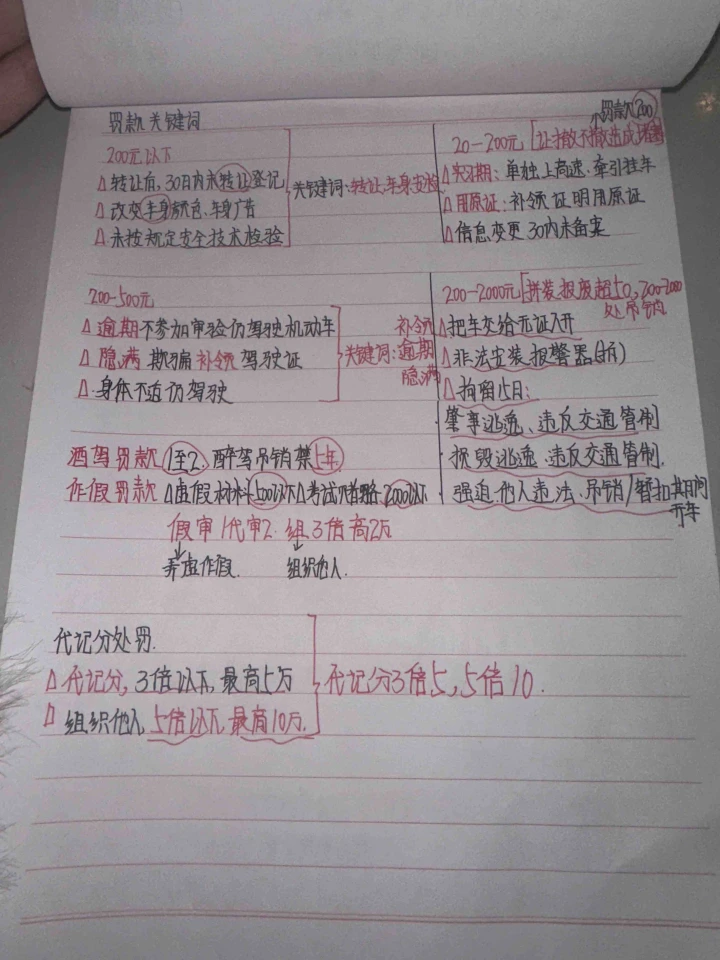 罚款关键词
200元以下
△转让后,30日内未转让登记
△改变车身颜色、车身广告
△未按规定安全技术检验
关键词:转让.车身安检
罚款200
20-200元[让撤不撤造成
△实习期:单独上高速.牵引挂车
△用原证:补领证明用原证
△信息变更30内未备案
200-500元
△逾期不参加审验仍驾驶机动车
△隐满欺骗补领驾驶证
△身体不适仍驾驶
关键词:补领
逾期
隐满
200-2000元[拼装报废超50,200-2000
处吊销
△把车交给无证人开
△非法安装报警器
△拘留15日:
肇事逃逸、违反交通管制
损毁逃逸、违反交通管制.
强迫他人违法.吊销/暂扣其期间
开车
酒驾罚款1至2.醉驾吊销禁5年
作假罚款△虚假材料500以下△考试贿赂2000以下
假审1代审2.组3倍高2万
↓弄虚作假.
↓组织他人.
代记分处罚.
△代记分,3倍以下,最高5万
△组织他人5倍以下,最高10万.
代记分3倍5,5倍10.